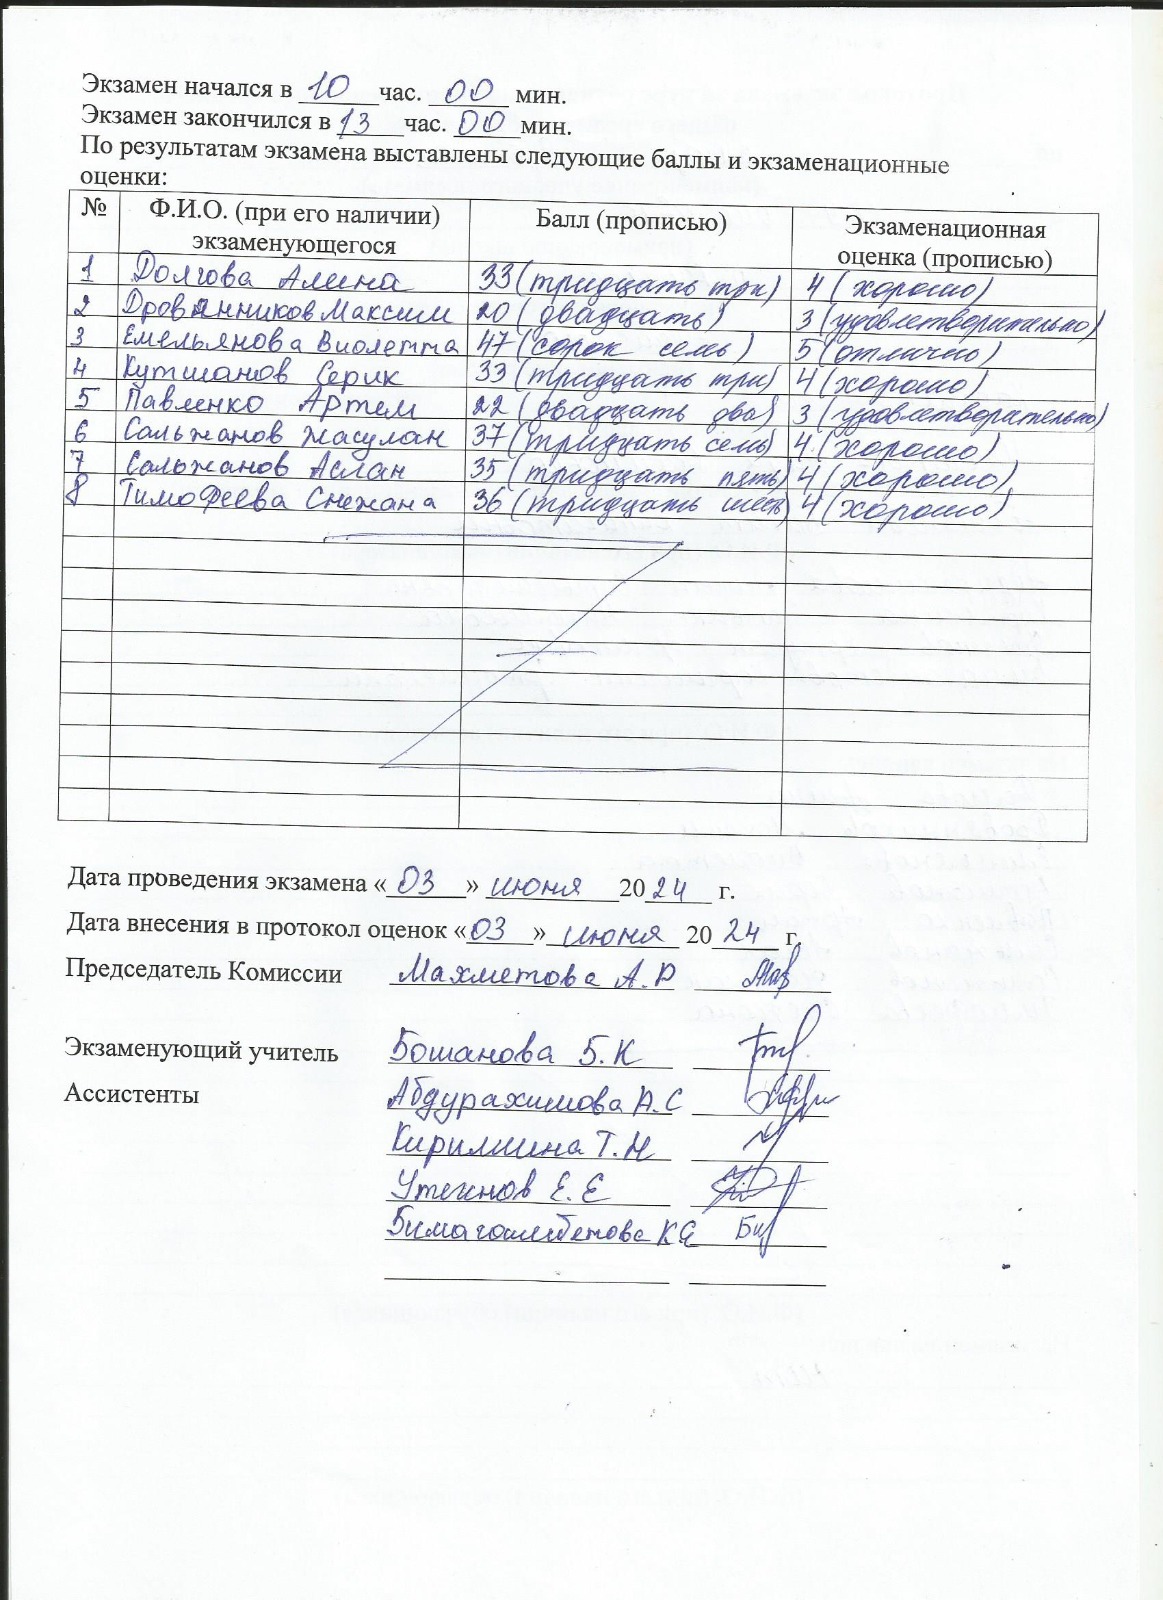 Экзамен начался в 10 час. 00 мин.
Экзамен закончился в 13 час. 00 мин.
По результатам экзамена выставлены следующие баллы и экзаменационные
оценки:
№ Ф.И.О. (при его наличии) экзаменующегося Балл (прописью) Экзаменационная оценка (прописью)
1 Долгова Алина 33 (тридцать три) 4 (хорошо)
2 Дровянников Максим 20 (двадцать) 3 (удовлетворительно)
3 Емельянова Виолетта 47 (сорок семь) 5 (отлично)
4 Кутжанов Серик 33 (тридцать три) 4 (хорошо)
5 Павленко Артем 22 (двадцать два) 3 (удовлетворительно)
6 Сальжанов Жасулан 37 (тридцать семь) 4 (хорошо)
7 Сальжанов Аслан 35 (тридцать пять) 4 (хорошо)
8 Тимофеева Снежана 36 (тридцать шесть) 4 (хорошо)
Дата проведения экзамена «03» июня 2024 г.
Дата внесения в протокол оценок «03» июня 2024 г.
Председатель Комиссии Махметова А.Р
Экзаменующий учитель Бошанова Б.К
Ассистенты Абдурахимова А.С
Кирилшина Т.Н
Утекнов Е.Е
Бимагамбетова К